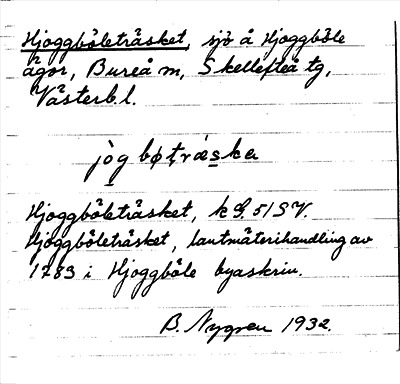 Hjoggböleträsket, sjö å Hjoggböle
ägor, Bureå sn, Skellefteå tg,
Västerb. l.
jòg bøt,ræska
Hjoggböleträsket, k G. 51 SV.
Hjoggböleträsket, lantmäterihandling av
1783 i Hjoggböle byaskrin.
B. Nygren 1932.